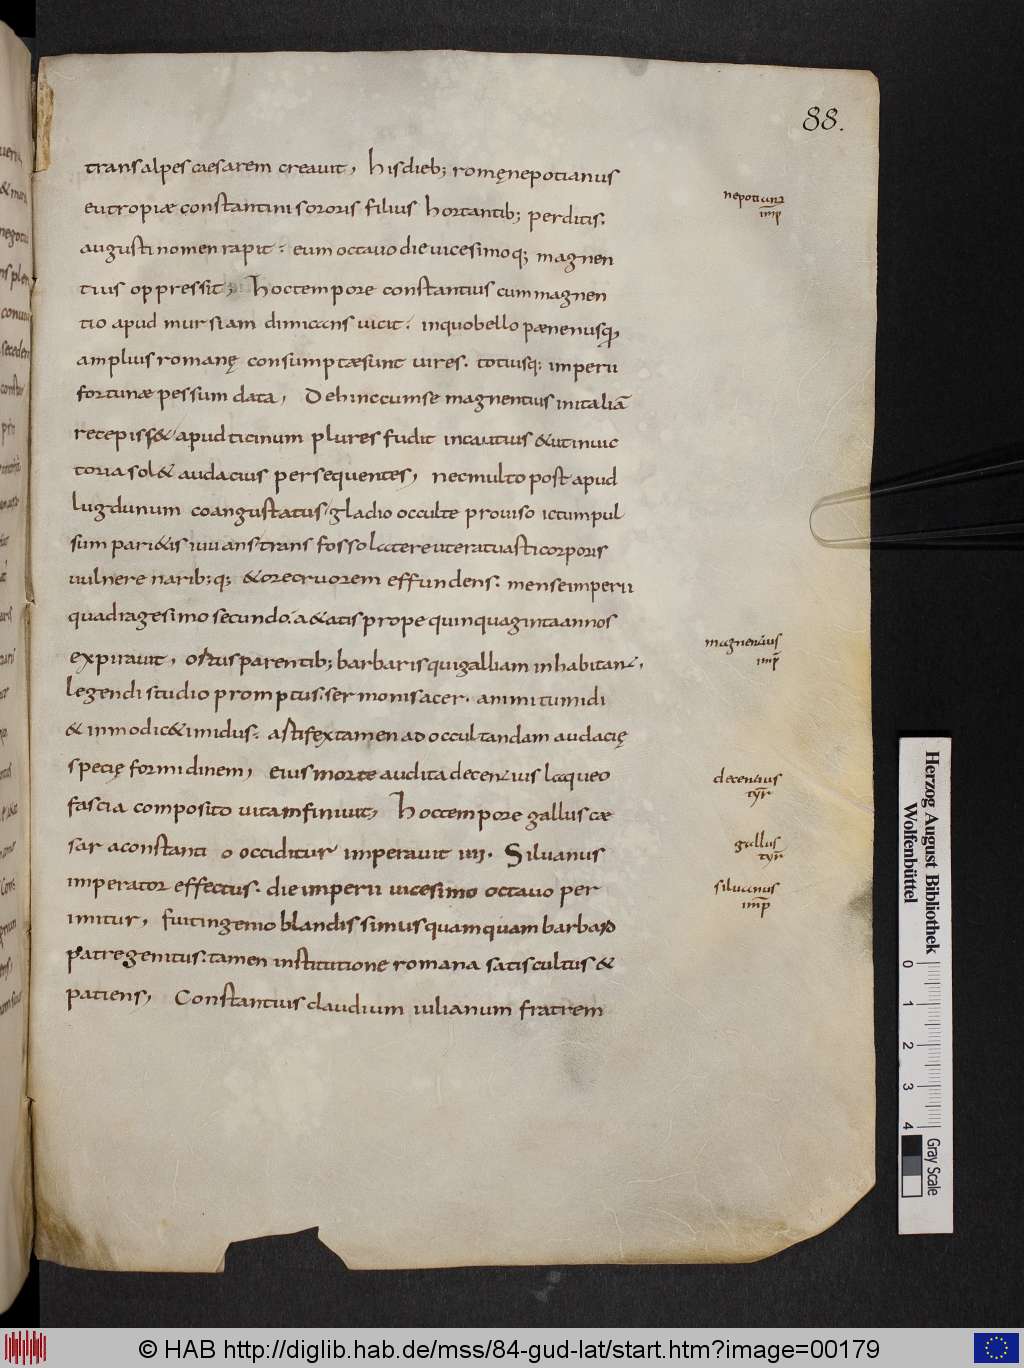 88.
transalpes caesarem creauit, hisdieb; romęnepotianus
nepotianus
imp
eutropiæ constantini sororis filius hortantib; perditis.
augusti nomen rapit: eum octauo die uicesimoq; magnen
tius oppressit; hoctempore constantius cum magnen
tio apud mursiam dimicans uicit. inquobello pæne nusq;
amplius romanę consumptæsunt uires. totiusq; imperii
fortunæ pessum data, Dehinccumse magnentius initaliā
recepiss& apud ticinum plures fudit incautius &utinuic
toria sol& audacius persequentes, necmulto post apud
lugdunum coangustatus gladio occulte prouiso ictum pul
sum pari&is iuuans trans fosso latere uteratuasti corporis
uulnere narib;q; &orecruorem effundens. mense imperii
quadragesimo secundo. a&atis prope quinquaginta annos
magnentius
imp
expirauit, ortus parentib; barbaris qui galliam inhabitant,
legendi studio promptus. sermonis acer. animi tumidi
& inmodic&imidus. astifextamen ad occultandam audacię
specię formidinem, eius morte audita decentius laqueo
decentius
tyr
fascia composito uitam finiuit, hoctempore gallus cæ
sar aconstanti o occiditur imperauit iiii. Siluanus
gallus
tyr
imperator effectus. die imperii uicesimo octauo per
siluanus
imp
imitur, fuit ingenio blandissimus quamquam barbaro
patregenitus. tamen institutione romana satis cultus &
patiens, Constantius claudium iulianum fratrem
Herzog August Bibliothek
Wolfenbüttel
0 1 2 3 4
Gray Scale
© HAB http://diglib.hab.de/mss/84-gud-lat/start.htm?image=00179